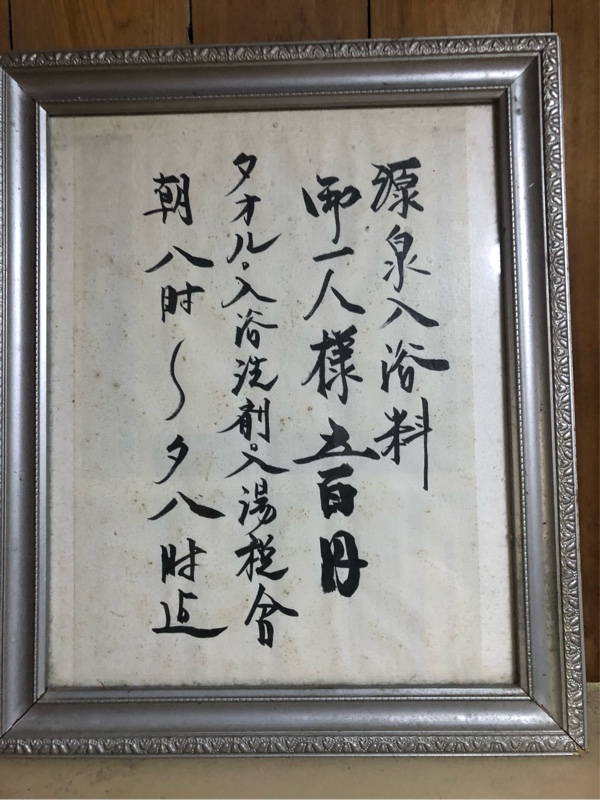 源泉入浴料
御一人様五百円
タオル。入浴洗剤。入湯税含
朝八時〜夕八時迄